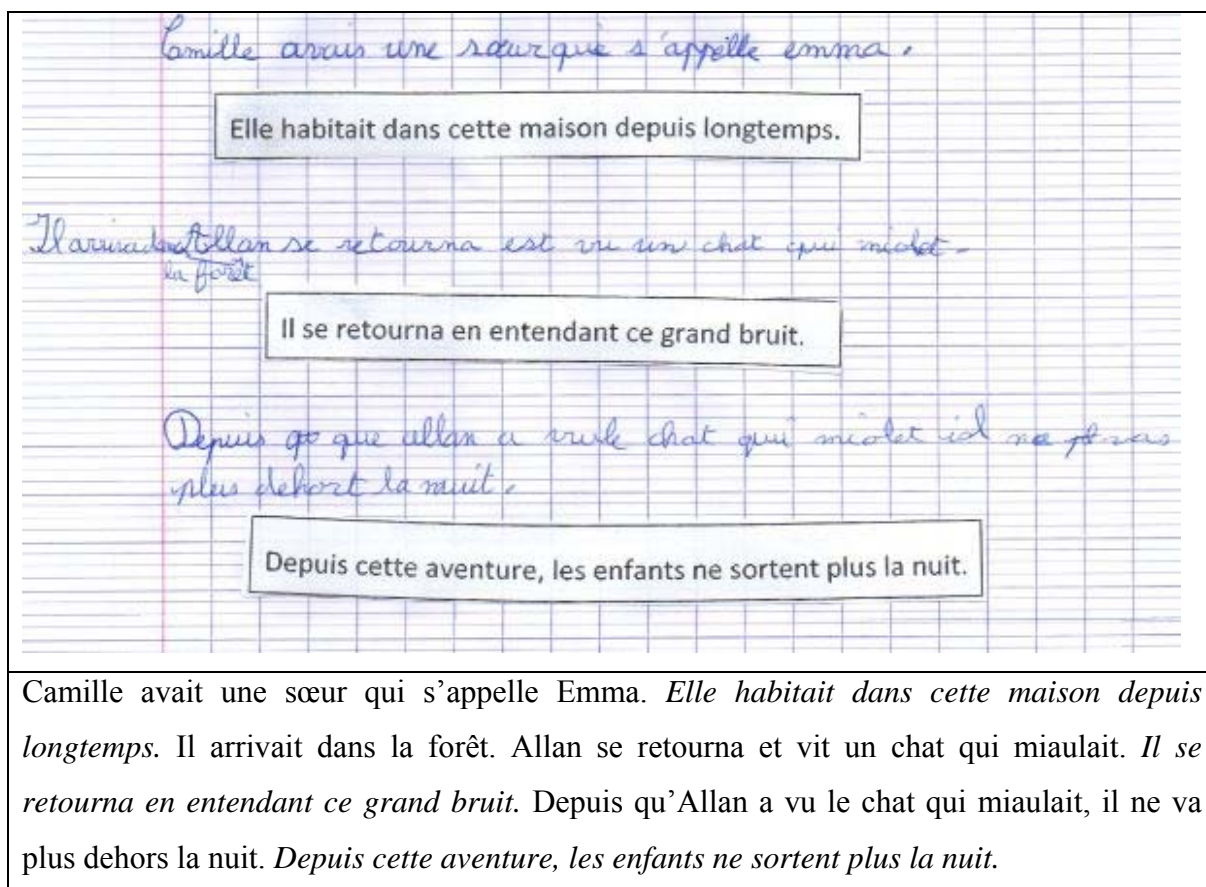 Camille avais une sœur qui s'appelle emma.
Elle habitait dans cette maison depuis longtemps.
Il arriva dans Allan se retourna est vu un chat qui miolet.
la forêt
Il se retourna en entendant ce grand bruit.
Depuis que allan a vu le chat qui miolet il ne vas
plus dehort la nuit.
Depuis cette aventure, les enfants ne sortent plus la nuit.
Camille avait une sœur qui s'appelle Emma. Elle habitait dans cette maison depuis
longtemps. Il arrivait dans la forêt. Allan se retourna et vit un chat qui miaulait. Il se
retourna en entendant ce grand bruit. Depuis qu'Allan a vu le chat qui miaulait, il ne va
plus dehors la nuit. Depuis cette aventure, les enfants ne sortent plus la nuit.